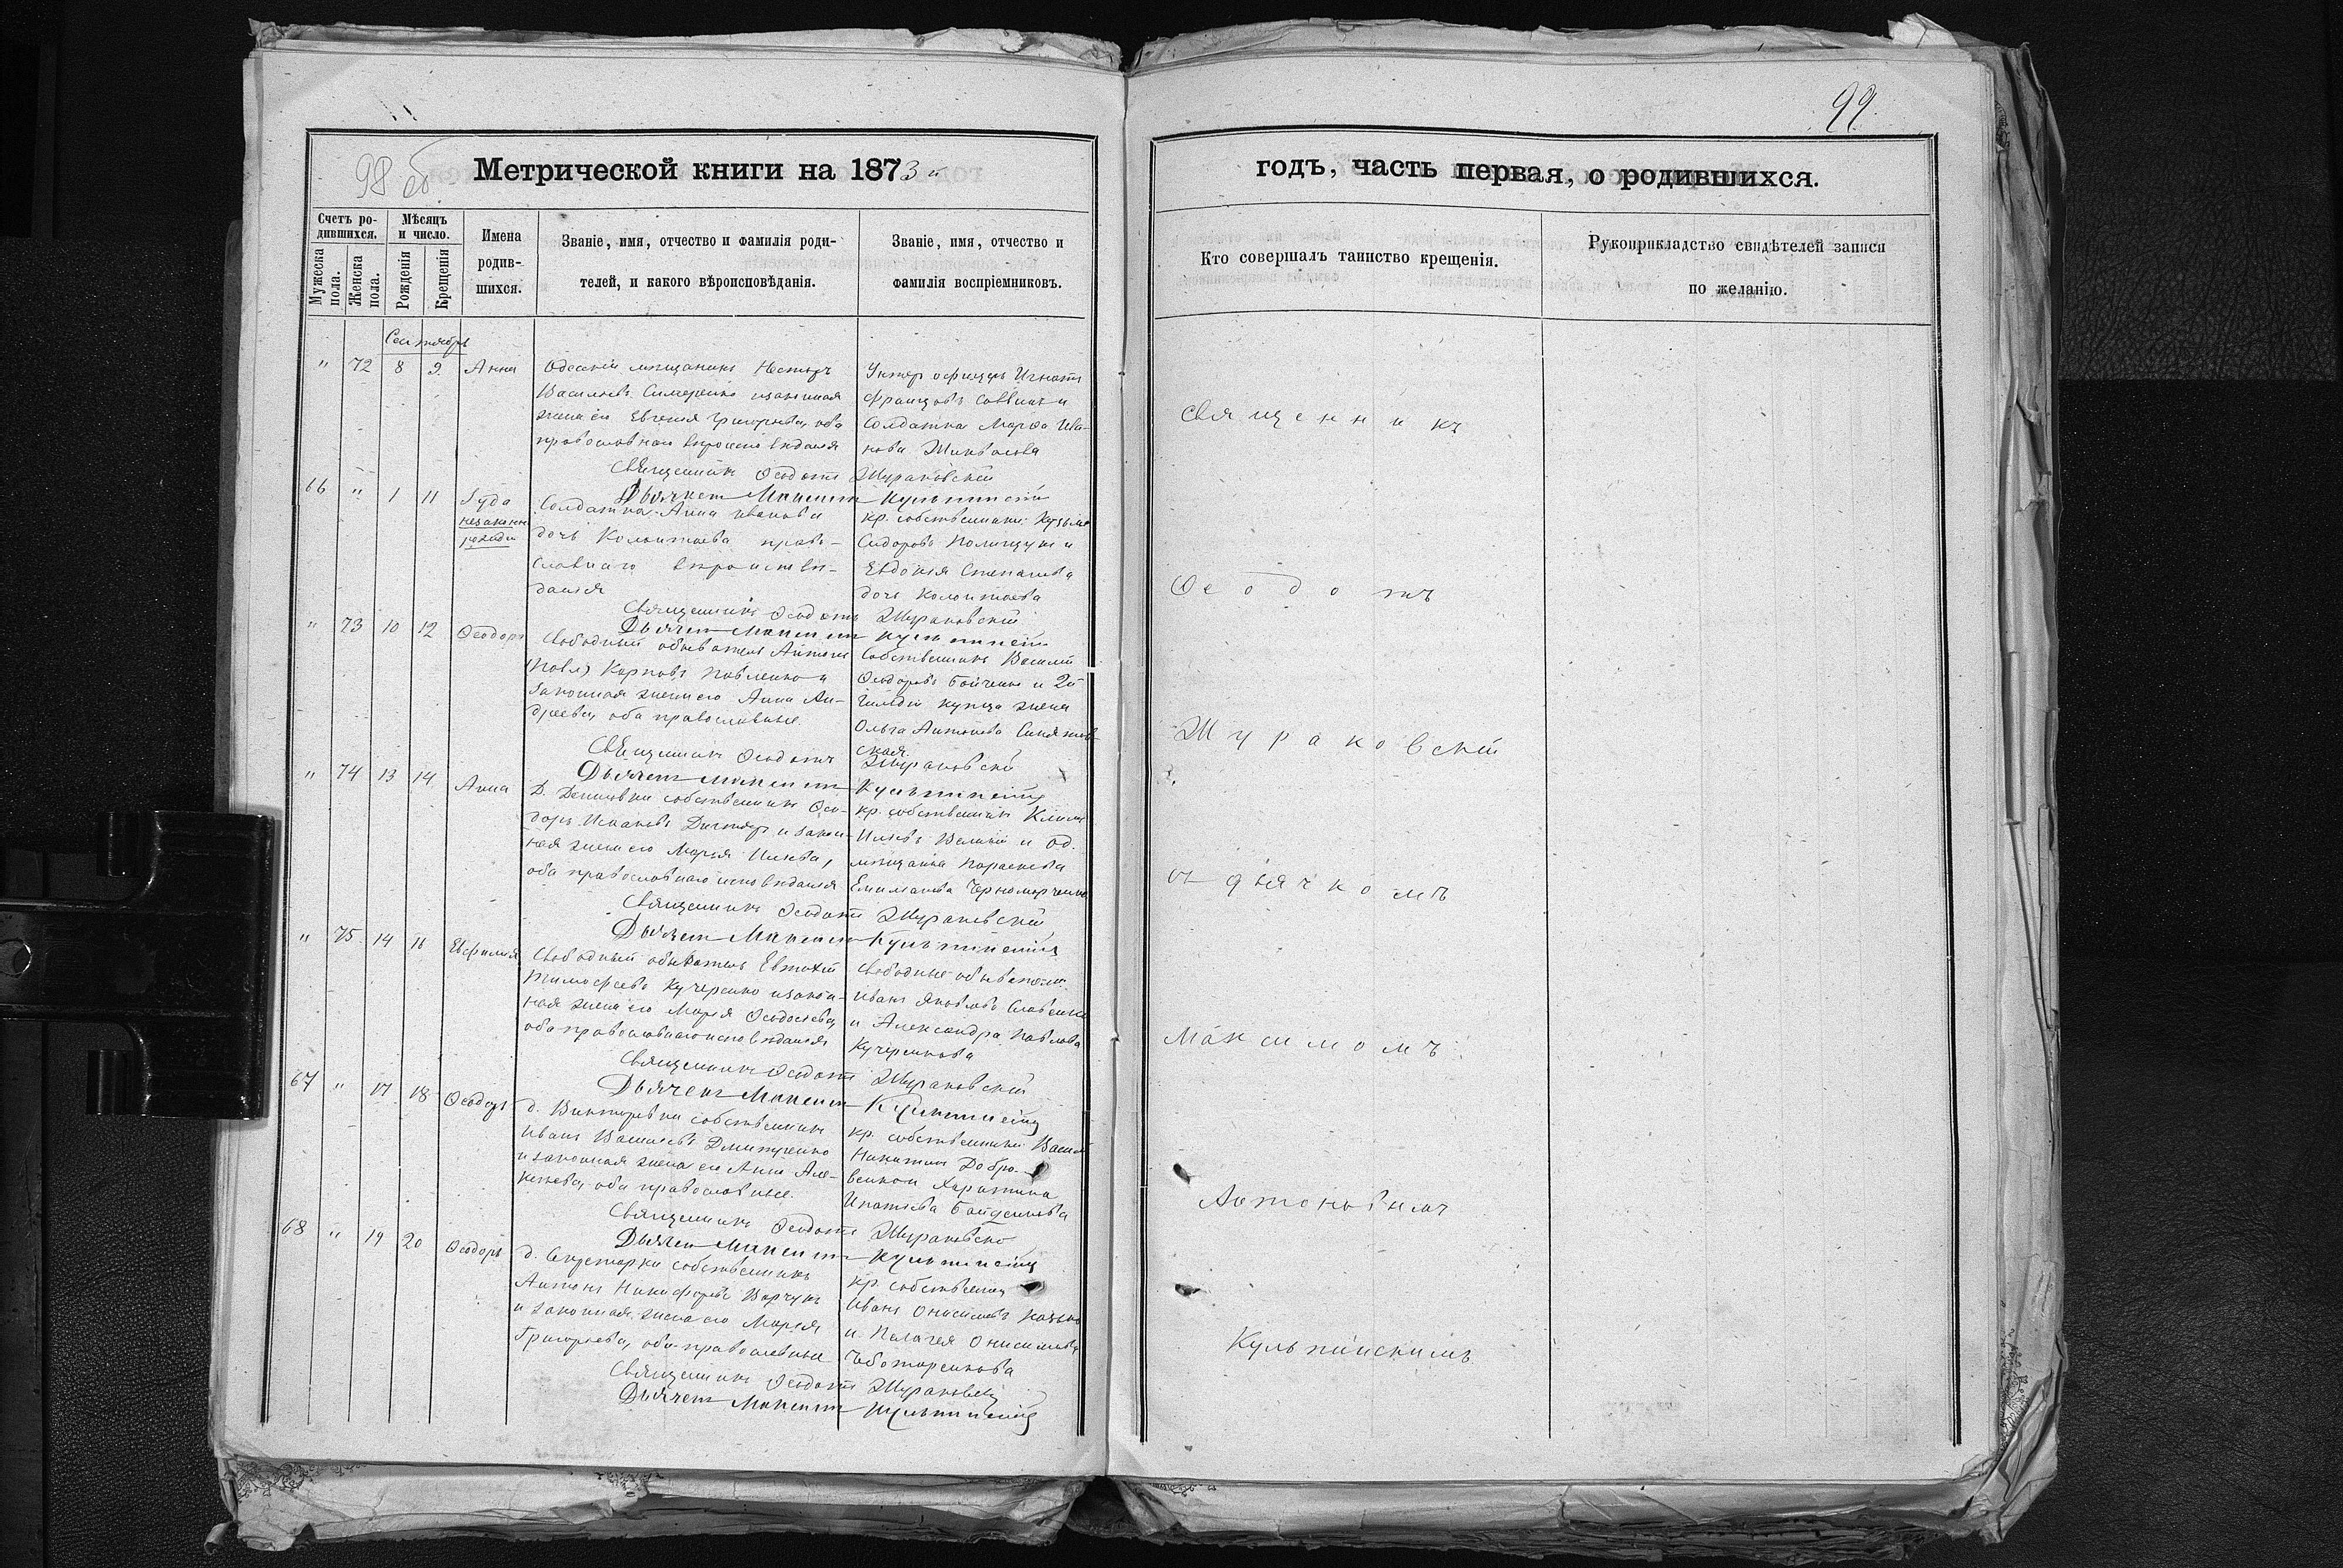 99.
98 об
Метрической книги на 1873 й
годъ, часть первая, о родившихся.
Счетъ родившихся.
Мужеска пола.
Женска пола.
Мѣсяцъ и число.
Рожденія
Крещенія
Имена родившихся.
Званіе, имя, отчество и фамилія родителей, и какого вѣроисповѣданія.
Званіе, имя, отчество и фамилія воспріемниковъ.
Кто совершалъ таинство крещенія.
Рукоприкладство свидѣтелей записи по желанію.
Сентябрь
" 72 8 9. Анна
Одесскій мѣщанинъ Несторъ
Васильевъ и законная
жена его Евгенія Григорьева, оба
православнаго вѣроисповѣданія
Унтер офицеръ Игнатъ
Францовъ и
Солдатка Марфа Ива-
нова
Священникъ Ѳеодотъ Жураковскій
Дьячекъ Максимъ Кульпинскій
66 " 1 11 Іуда
незаконно
рожден
Солдатка Анна Иванова
дочь Колонтаева право-
славнаго вѣроисповѣ-
данія
кр. собственникъ Кузьма
Сидоровъ Полищукъ и
Евдокія Степанова
дочь Колонтаева
Священникъ Ѳеодотъ Жураковскій
Дьячекъ Максимъ Кульпинскій
" 73 10 12 Ѳеодора
Свободный обыватель Антонъ
(Павл) Карповъ Павленко и
законная жена его Анна Ан-
дреева, оба православные.
Собственникъ Василій
Ѳеодоровъ Бойченко и 2й
гильдіи купца жена
Ольга Антонова
ская.
Священникъ Ѳеодотъ Жураковскій
Дьячекъ Максимъ Кульпинскій
" 74 13 14 Анна
Д. собственникъ Ѳео-
доръ и закон-
ная жена его Марія
оба православнаго исповѣданія
кр. собственникъ Климъ
и Од.
мѣщанка Параскева
Черноморченко
Священникъ Ѳеодотъ Жураковскій
Дьячекъ Максимъ Кульпинскій
" 75. 14 16 Евфимія
Свободный обыватель Евтихій
Тимофеевъ Кучеренко и закон-
ная жена его Марія Ѳеодосіева,
оба православнаго исповѣданія
Свободные обыватели
Иванъ Яковлевъ
и Александра Павлова
Кучеренкова
Священникъ Ѳеодотъ Жураковскій
Дьячекъ Максимъ Кульпинскій
67 " 17 18 Ѳеодоръ
д. Викторовки собственникъ
Иванъ Васильевъ Дмитренко
и законная жена его Анна Але-
ксѣева, оба православные.
кр. собственники Васил
Никитинъ
Харитина
Игнатьева
Священникъ Ѳеодотъ Жураковскій
Дьячекъ Максимъ Кульпинскій
68 " 19 20 Ѳеодоръ
д. собственникъ
Антонъ Никифоровъ
и законная жена его Марія
Григорьева, оба православные
кр. собственник
Иванъ Онисимовъ
и Пелагея Онисимова
Чеботаренкова
Священникъ Ѳеодотъ Жураковскій
Дьячекъ Максимъ Кульпинскій
Священникъ
Ѳеодотъ
Жураковскій
съ дьячкомъ
Максимомъ
Антоновимъ
Кульпинскимъ